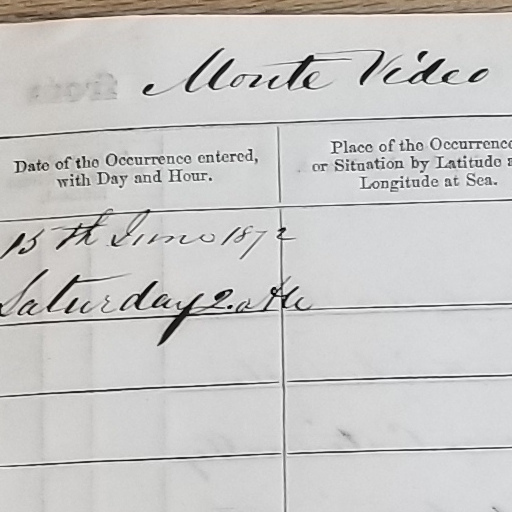 Monte Video
Date of the Occurrence entered,
with Day and Hour.
Place of the Occurrence
or Situation by Latitude a
Longitude at Sea.
15th June 1872
Saturday 2.